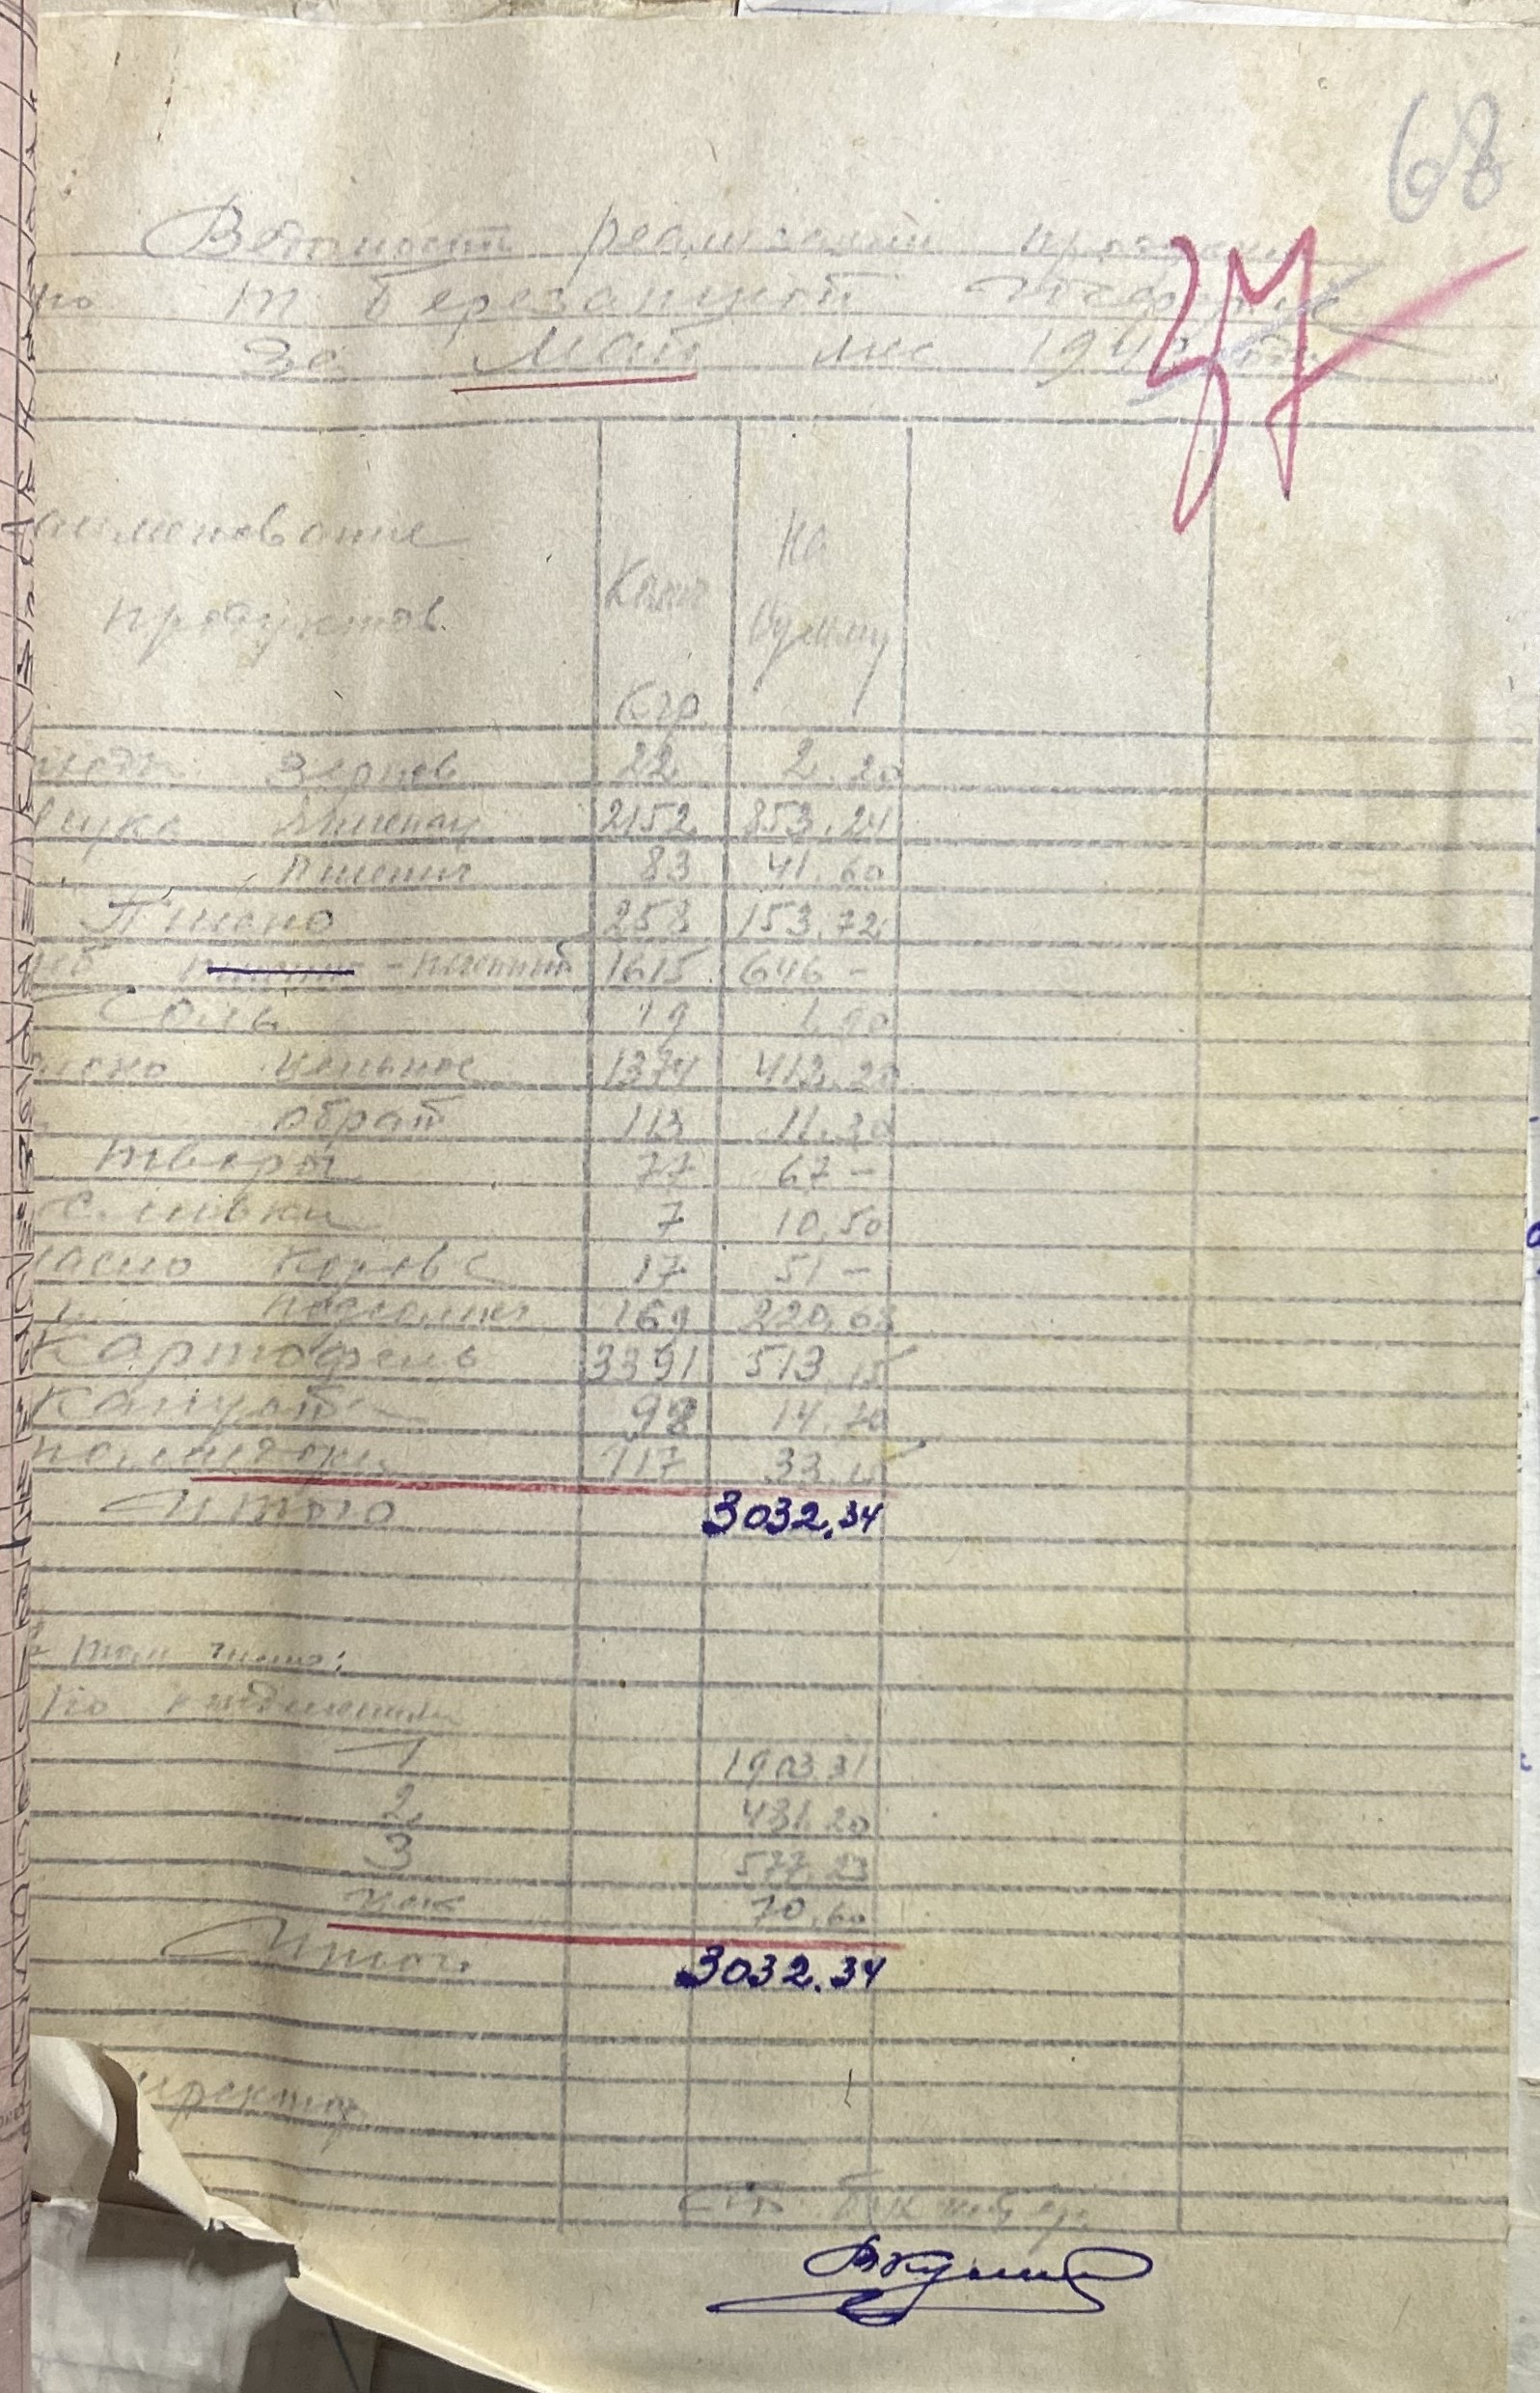 68
37
Ведомость реализации продукции
по т. Березанской Птицефабрике
За Май мес 194
аименование продуктов Колич Кгр На Сумму
Зернов 22 2.20
Мука Ячменая 2152 853.24
" Пшенич 83 41.60
Пшено 258 153.72
леб - пшеничный 1615 646 -
Соль 19 1.90
локо цельное 1374 412.20
" обрат 113 11.30
творог 77 67 -
Сливки 7 10.50
масло Коровье 17 51 -
" Подсолнеч 169 220.68
Картофель 3391 513.15
Капуста 98 14.70
117 33.15
Итого 3032.34
в том числе:
По отделениям
1 1903.31
2 481.20
3 577.23
70.60
Итого 3032.34
иректор
Ст. бухгалтер